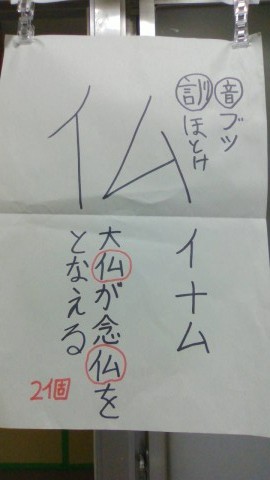 音 ブツ
訓 ほとけ
仏
イナム
大仏が念仏を
となえる
2個